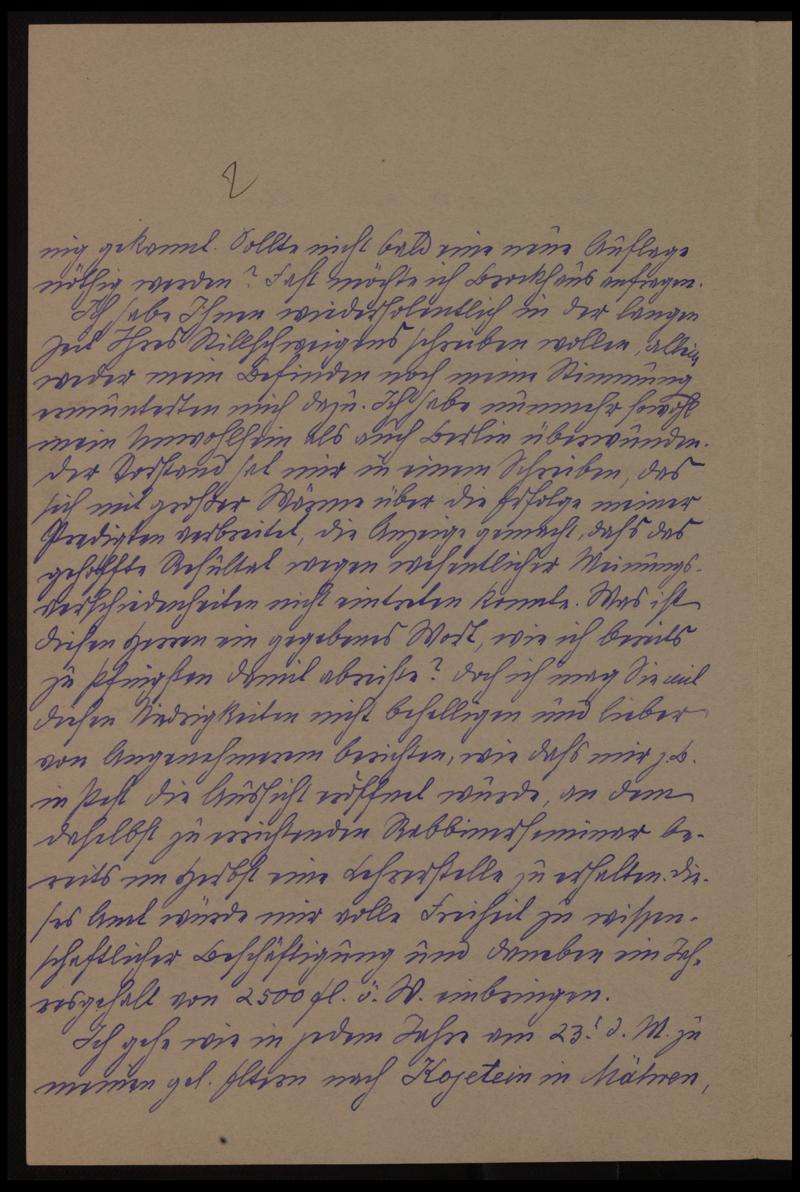 2
nig gekannt. Sollte nicht bald eine neue Auflage
nöthig werden? Fast möchte ich Brockhaus anfragen.
Ich habe Ihnen wiederholentlich in der langen
Zeit Ihres Stillschweigens schreiben wollen, allein
weder mein Befinden noch meine Stimmung
ermunterten mich dazu. Ich habe nunmehr sowohl
mein Unwohlsein als auch Berlin überwunden.
Der Vorstand hat mir in einem Schreiben, das
sich mit großer Wärme über die Erfolge meiner
Predigten verbreitet, die Anzeige gemacht, dass das
gehoffte Resultat wegen wesentlicher Meinungs-
verschiedenheiten nicht eintreten konnte. Was ist
diesen Herren ein gegebenes Wort, wie ich bereits
zu Pfingsten damit abreiste? Doch ich mag Sie mit
diesen Niedrigkeiten nicht behelligen und lieber
von Angenehmerem berichten, wie dass mir z. B.
in Pest die Aussicht eröffnet wurde, an dem
daselbst zu errichtenden Rabbinerseminar be-
reits im Herbst eine Lehrerstelle zu erhalten. Die-
ses Amt würde mir volle Freiheit zu wissen-
schaftlicher Beschäftigung und daneben ein Jah-
resgehalt von 2500 fl. ö. W. einbringen.
Ich gehe wie in jedem Jahre am 23. d. M. zu
meinen gel. Eltern nach Kojetein in Mähren,